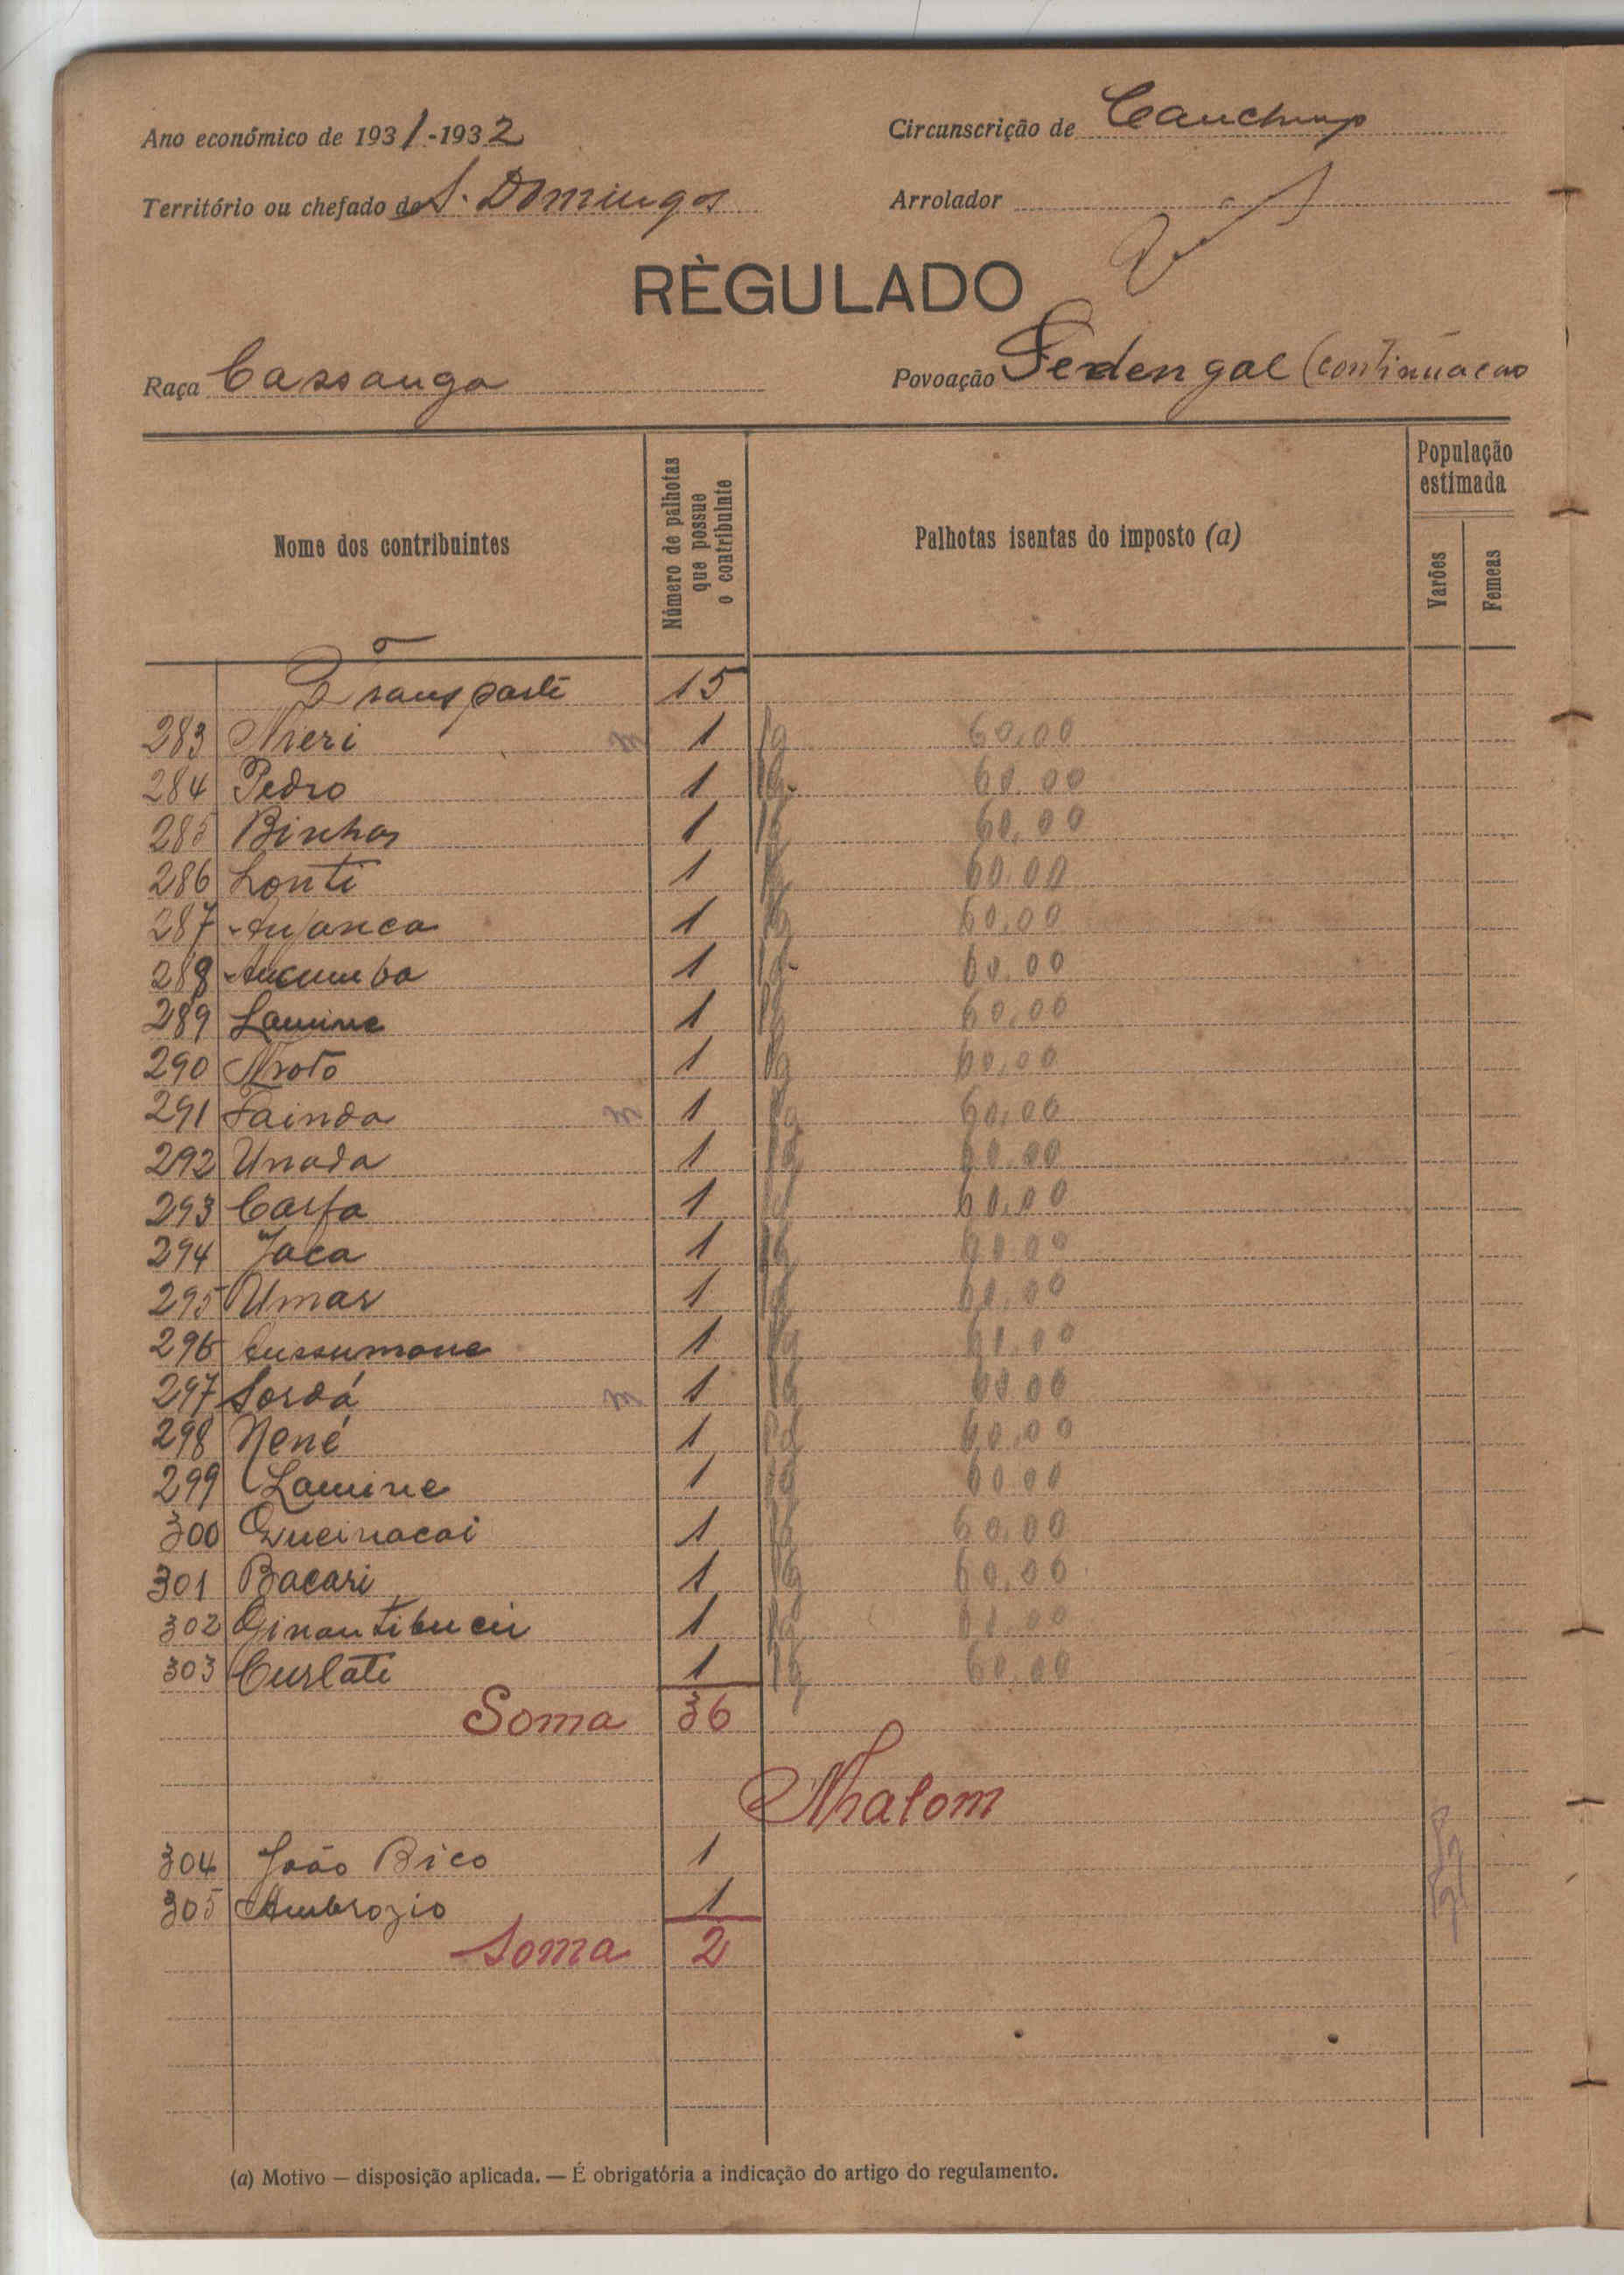 Ano económico de 1931-1932
Circunscrição de
Território ou chefado de S. Domingos
Arrolador
RÈGULADO
Raça Cassanga
Povoação (continuacao
Nome dos contribuintes
Número de palhotas que possue o contribuinte
Palhotas isentas do imposto (a)
População estimada
Varões
Femeas
Transporte 15
283 Nieri m 1 Pg 60,00
284 Pedro 1 Pg. 60.00
285 1 Pg 60,00
286 Lonti 1 Pg 60.00
287 1 Pg 60,00
288 1 Pg 60.00
289 Lamine 1 Pg 60,00
290 1 Pg 60,00
291 Fainda m 1 Pg 60,00
292 Unada 1 Pg 60.00
293 Carfa 1 Pg 60,00
294 Jaca 1 Pg 60.00
295 Umar 1 Pg 60,00
296 Cussumane 1 Pg 60.00
297 Sordá m 1 Pg 60.00
298 Nené 1 Pg 60,00
299 Lamine 1 Pg 60.00
300 Queinacai 1 Pg 60,00
301 Bacari 1 Pg 60,00
302 1 Pg 60.00
303 Curlate 1 Pg 60,00
Soma 36
Nhalom
304 João Bico 1 Pg
305 Ambrozio 1 Pg
Soma 2
(a) Motivo — disposição aplicada. — É obrigatória a indicação do artigo do regulamento.